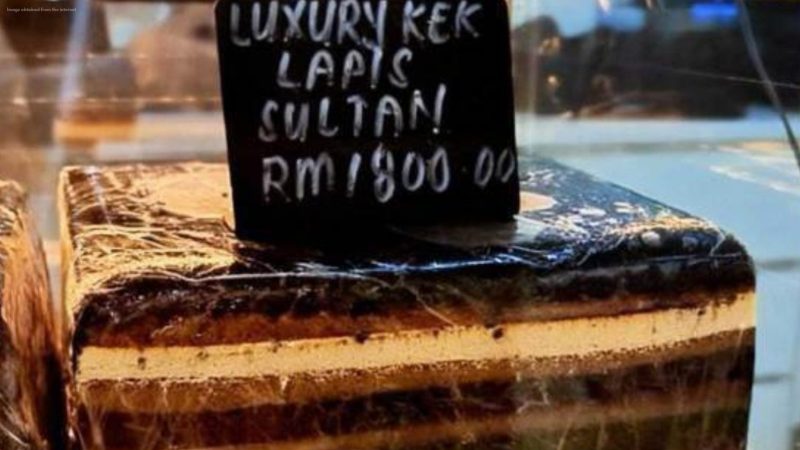 Image obtained from the internet
LUXURY KEK
LAPIS
SULTAN
RM1800.00